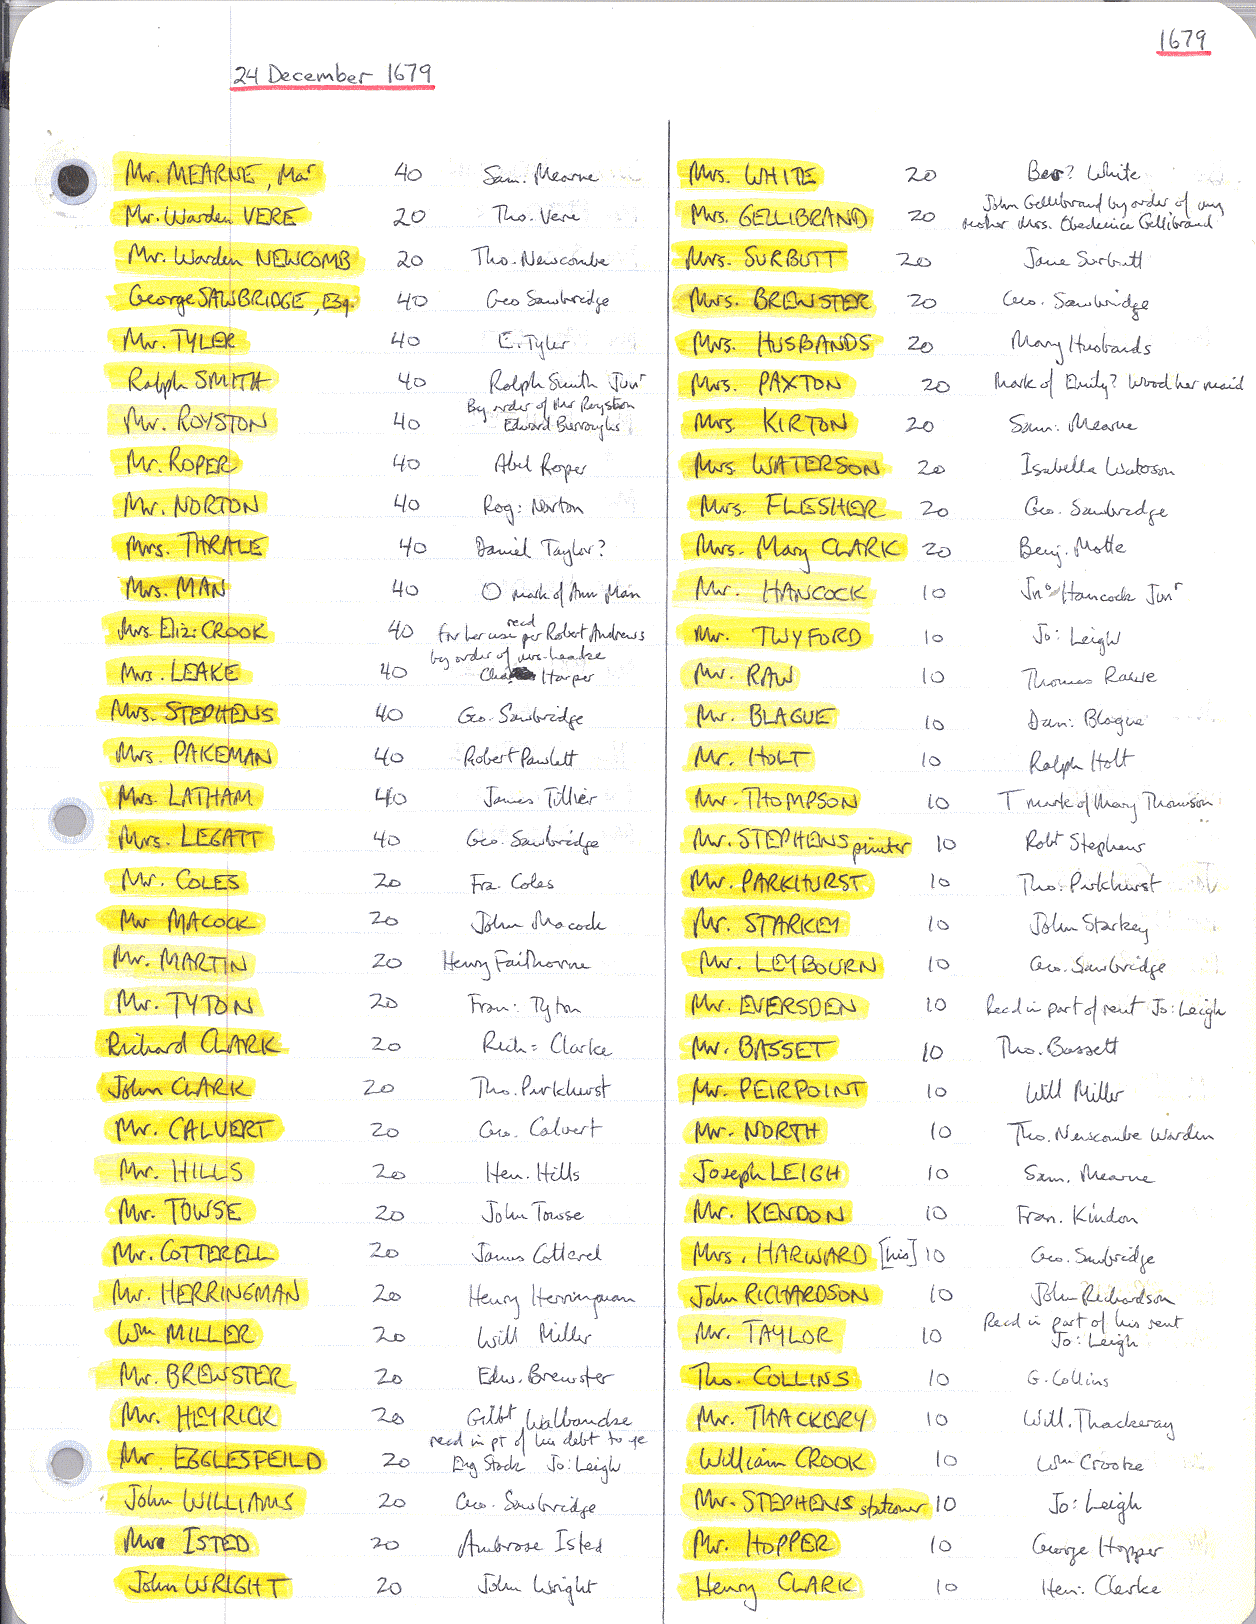 1679
24 December 1679
Mr. MEARNE, Mar 40 Sam. Mearne
Mr. Warden VERE 20 Tho. Vere
Mr. Warden NEWCOMB 20 Tho. Newcombe
George SAWBRIDGE, Esq. 40 Geo Sawbridge
Mr. TYLER 40 E. Tyler
Ralph SMITH 40 Ralph Smith Junr
By order of Mr Royston
Mr. ROYSTON 40 Edward Burroughs
Mr. ROPER 40 Abel Roper
Mr. NORTON 40 Rog: Norton
Mrs. THRALE 40 Daniel Taylor?
Mrs. MAN 40 O mark of Ann Man
read
Mrs. Eliz: CROOK 40 for her use per Robert Andrews
by order of mrs. Leake
Mrs. LEAKE 40 Cha Harper
Mrs. STEPHENS 40 Geo. Sawbridge
Mrs. PAKEMAN 40 Robert Pawlett
Mrs. LATHAM 40 James Tillier
Mrs. LEGATT 40 Geo. Sawbridge
Mr. COLES 20 Fra. Coles
Mr MACOCK 20 John Macock
Mr. MARTIN 20 Henry Faithorne
Mr. TYTON 20 Fran: Tyton
Richard CLARK 20 Rich= Clarke
John CLARK 20 Tho. Parkhurst
Mr. CALVERT 20 Geo. Calvert
Mr. HILLS 20 Hen. Hills
Mr. TOWSE 20 John Towse
Mr. COTTERELL 20 James Cotterel
Mr. HERRINGMAN 20 Henry Herringman
Wm MILLER 20 Will Miller
Mr. BREWSTER 20 Edw. Brewster
Mr. HEYRICK 20 Gilbt
read in pt of his debt to ye
Mr. EGGLESFEILD 20 Eng Stock Jo: Leigh
John WILLIAMS 20 Geo. Sawbridge
ISTED 20 Ambrose Isted
John WRIGHT 20 John Wright
Mrs. WHITE 20 White
John Gellibrand by order of my
Mrs. GELLIBRAND 20 mother Mrs. Obedience Gellibrand
Mrs. SURBUTT 20 Jane Surbutt
Mrs. BREWSTER 20 Geo. Sawbridge
Mrs. HUSBANDS 20 Mary Husbands
Mrs. PAXTON 20 Mark of Emily? Wood her maid
Mrs. KIRTON 20 Sam: Mearne
Mrs. WATERSON 20 Isabella Waterson
Mrs. FLESHER 20 Geo. Sawbridge
Mrs. Mary CLARK 20 Benj. Motte
Mr. HANCOCK 10 Jno Hancock Junr
Mr. TWYFORD 10 Jo: Leigh
Mr. RAW 10 Thomas Rawe
Mr. BLAGUE 10 Dan: Blague
Mr. HOLT 10 Ralph Holt
Mr. THOMPSON 10 T mark of Mary Thomson
Mr. STEPHENS printer 10 Robt Stephens
Mr. PARKHURST 10 Tho: Parkhurst
Mr. STARKEY 10 John Starkey
Mr. LEYBOURN 10 Geo. Sawbridge
Mr. EVERSDEN 10 Read in part of rent Jo: Leigh
Mr. BASSET 10 Tho. Bassett
Mr. PEIRPOINT 10 Will Miller
Mr. NORTH 10 Tho. Newcombe Warden
Joseph LEIGH 10 Sam. Mearne
Mr. KENDON 10 Fran. Kindon
Mrs. HARWARD [his] 10 Geo. Sawbridge
John RICHARDSON 10 John Richardson
Read in part of his rent
Mr. TAYLOR 10 Jo: Leigh
Tho. COLLINS 10 G. Collins
Mr. THACKERY 10 Will. Thackeray
William CROOK 10 Wm Crooke
Mr. STEPHENS stationer 10 Jo: Leigh
Mr. HOPPER 10 George Hopper
Henry CLARK 10 Hen: Clerke